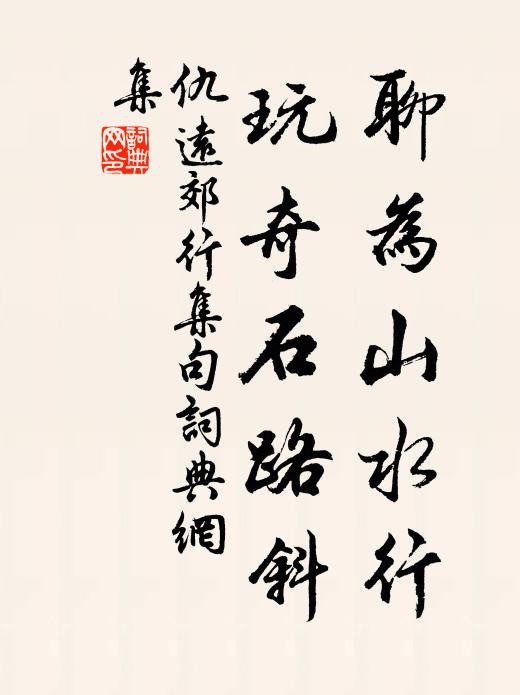 聊為山水行
玩奇石路斜
仇遠郊行集句詞典網
集
詞典
网印